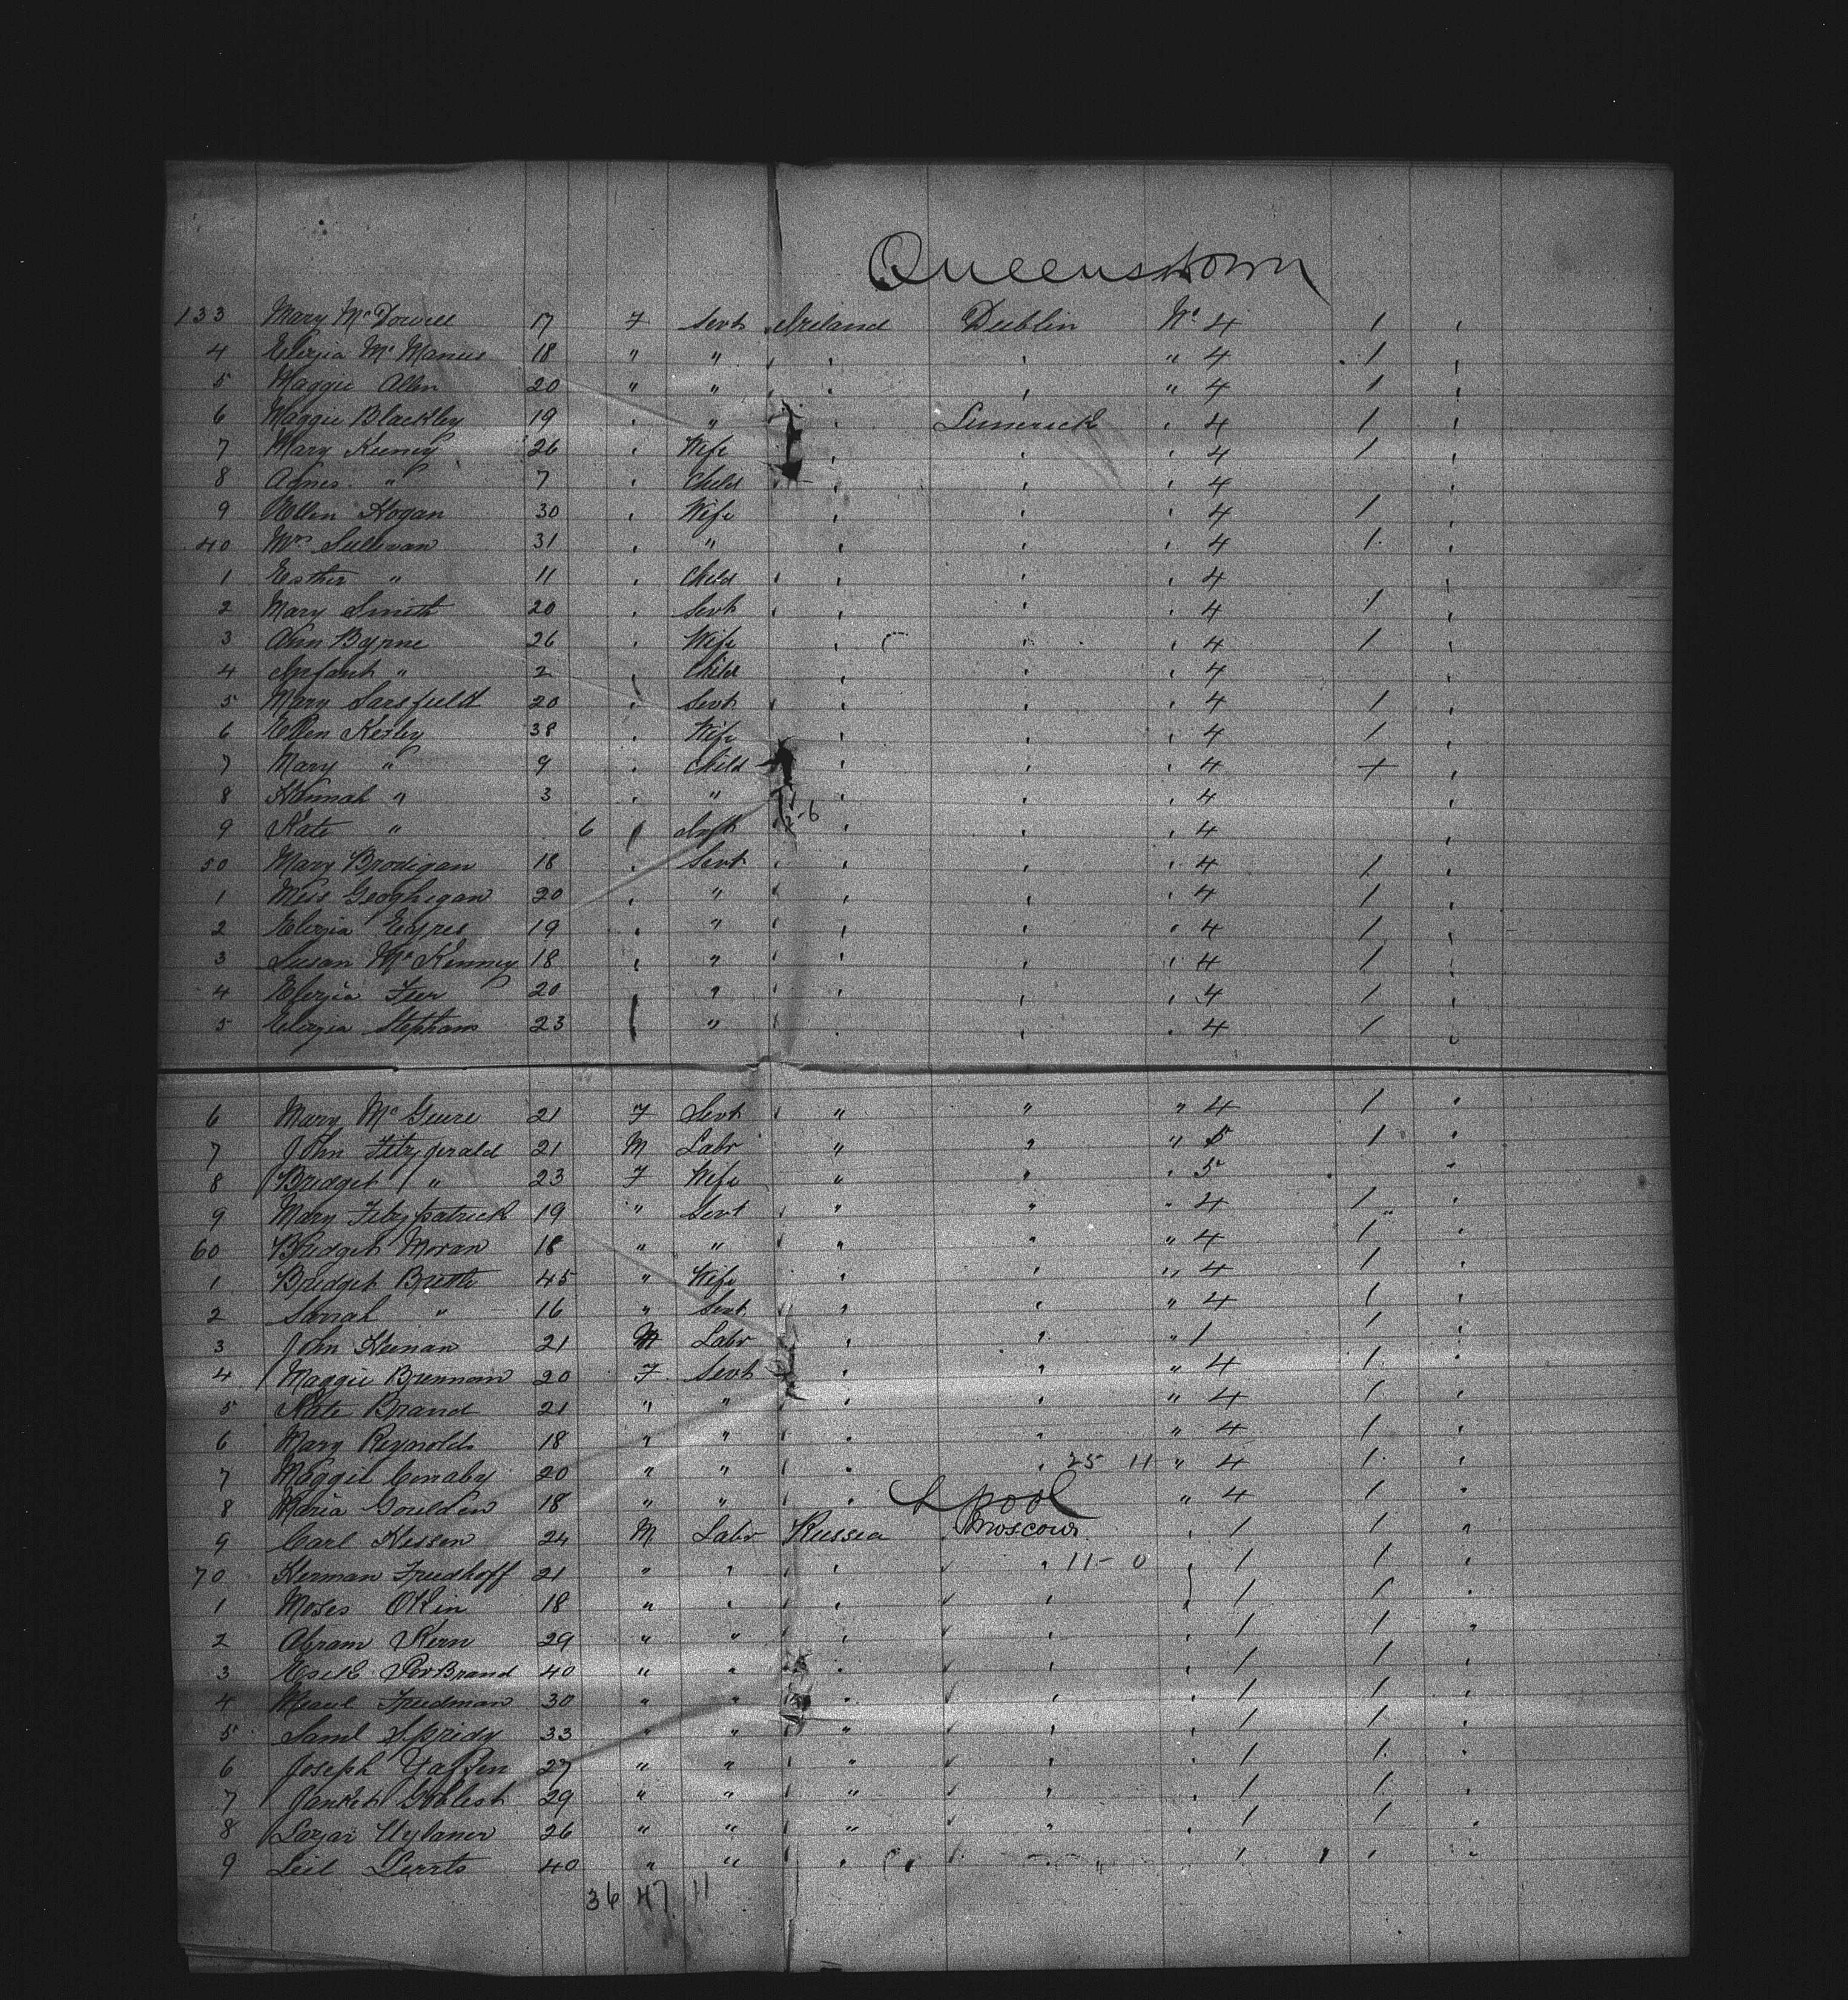 Queenstown
133 Mary McDowell 17 F Servt Ireland Dublin No 4 1 '
4 Elizia McManus 18 " " ' ' ' " 4 1 '
5 Maggie Allen 20 " " ' ' ' " 4 1 '
6 Maggie Blackley 19 ' " ' Limerick ' 4 1 '
7 Mary Keeney 26 ' Wife ' ' ' 4 1 '
8 Agnes " 7 ' Child ' ' ' 4 '
9 Ellen Hogan 30 ' Wife ' ' ' 4 1 '
40 Mrs Sullivan 31 ' " ' ' ' 4 1 '
1 Esther " 11 ' Child ' ' ' ' 4 '
2 Mary Smith 20 ' Servt ' ' ' ' 4 1 '
3 Ann Byrne 26 ' Wife ' ' ' 4 1 '
4 Infant " 2 ' Child ' ' ' 4 '
5 Mary Sarsfield 20 ' Servt ' ' ' ' 4 1 '
6 Ellen Kerley 38 ' Wife ' ' ' 4 1 '
7 Mary " 9 ' Child ' ' ' 4 + '
8 Hannah " 3 ' " 1 ' ' ' 4 '
9 Kate " 6 ' Inft 2-6 ' ' ' 4 '
50 Mary Brodigan 18 ' Servt ' ' ' ' 4 1 '
1 Miss Geoghigan 20 ' " ' ' ' ' 4 1 '
2 Elizia Eyres 19 ' " ' ' ' ' 4 1 '
3 Susan McKenney 18 ' " ' ' ' ' 4 1 '
4 Elizia Feer 20 " ' ' ' ' 4 1 '
5 Elizia Stephans 23 " ' ' ' ' 4 1 '
6 Mary McGuire 21 F Servt ' " " " 4 1 "
7 John Fitzgerald 21 M Labr " " " 5 1 "
8 Bridget " 23 F Wife " " ' 5 "
9 Mary Fitzpatrick 19 " Servt ' " " " 4 1 '
60 Bridget Moran 18 " " ' " " " 4 1 '
1 Bridget Brette 45 " Wife ' ' " 4 1 '
2 Sarah " 16 " Servt ' ' ' " 4 1 '
3 John Keenan 21 M Labr ' ' " 1 1 '
4 Maggie Brennan 20 F Servt ' ' " 4 1 '
5 Kate Brand 21 " " ' ' ' " 4 1 '
6 Mary Reynolds 18 " " ' ' ' " 4 1 '
7 Maggie 20 " " ' ' ' 25 11 " 4 1 '
8 Maria Goulden 18 " " ' ' " 4 1 "
Lpool
9 Carl Kessen 24 M Labr Russia Moscow ' 1 1 "
70 Herman Friedhoff 21 " " ' ' ' 11-0 ' 1 1 '
1 Moses Okin 18 " ' ' ' ' 1 1 '
2 Abram Kern 29 " " ' ' ' ' 1 1 "
3 40 " " ' ' ' 1 1 '
4 Freedman 30 " " " ' ' 1 1 '
5 Saml 33 " " " ' ' 1 1 '
6 Joseph 27 " " ' " ' ' 1 1 '
7 29 " " ' " ' ' 1 1 '
8 Lazar 26 " " ' " ' ' 1 1 '
9 40 " " ' ' 1 1
36 47 11